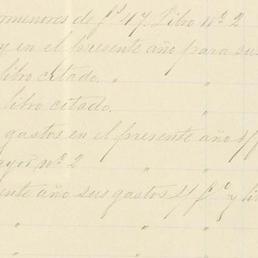 menores de fs 47. Libro Nº 2
y en el presente año para sus
libro citado. " "
libro citado. "
gastos en el presente año s/f
ayor nº 2 " "
ente año sus gastos s/ fc y li
" "
" "